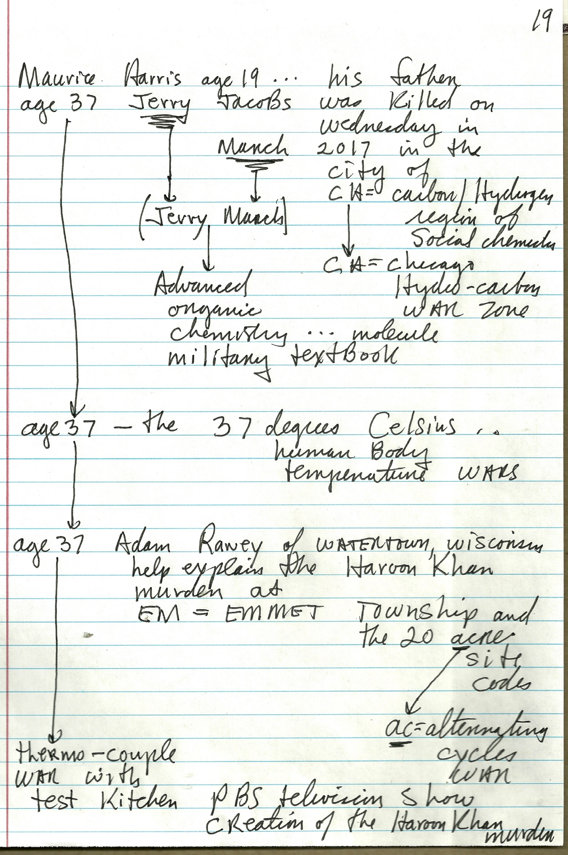 19
Maurice Harris age 19 ... his father
age 37 Jerry Jacobs was killed on
wednesday in
March 2017 in the
city of
CH= carbon/Hydrogen
(Jerry March) region of
Social chemicals
CH= chicago
Advanced Hydro-carbon
organic WAR Zone
chemistry ... molecule
military textBook
age 37 – the 37 degrees Celsius ..
human Body
temperature WARS
age 37 Adam Rawey of WATERTOWN, wisconsin
help explain the Haroon Khan
murder at
EM = EMMET TOWNSHIP and
the 20 acre
site
codes
ac=alternating
cycles
WAR
thermo-couple
WAR with
test Kitchen PBS television show
creation of the Haroon Khan
murder